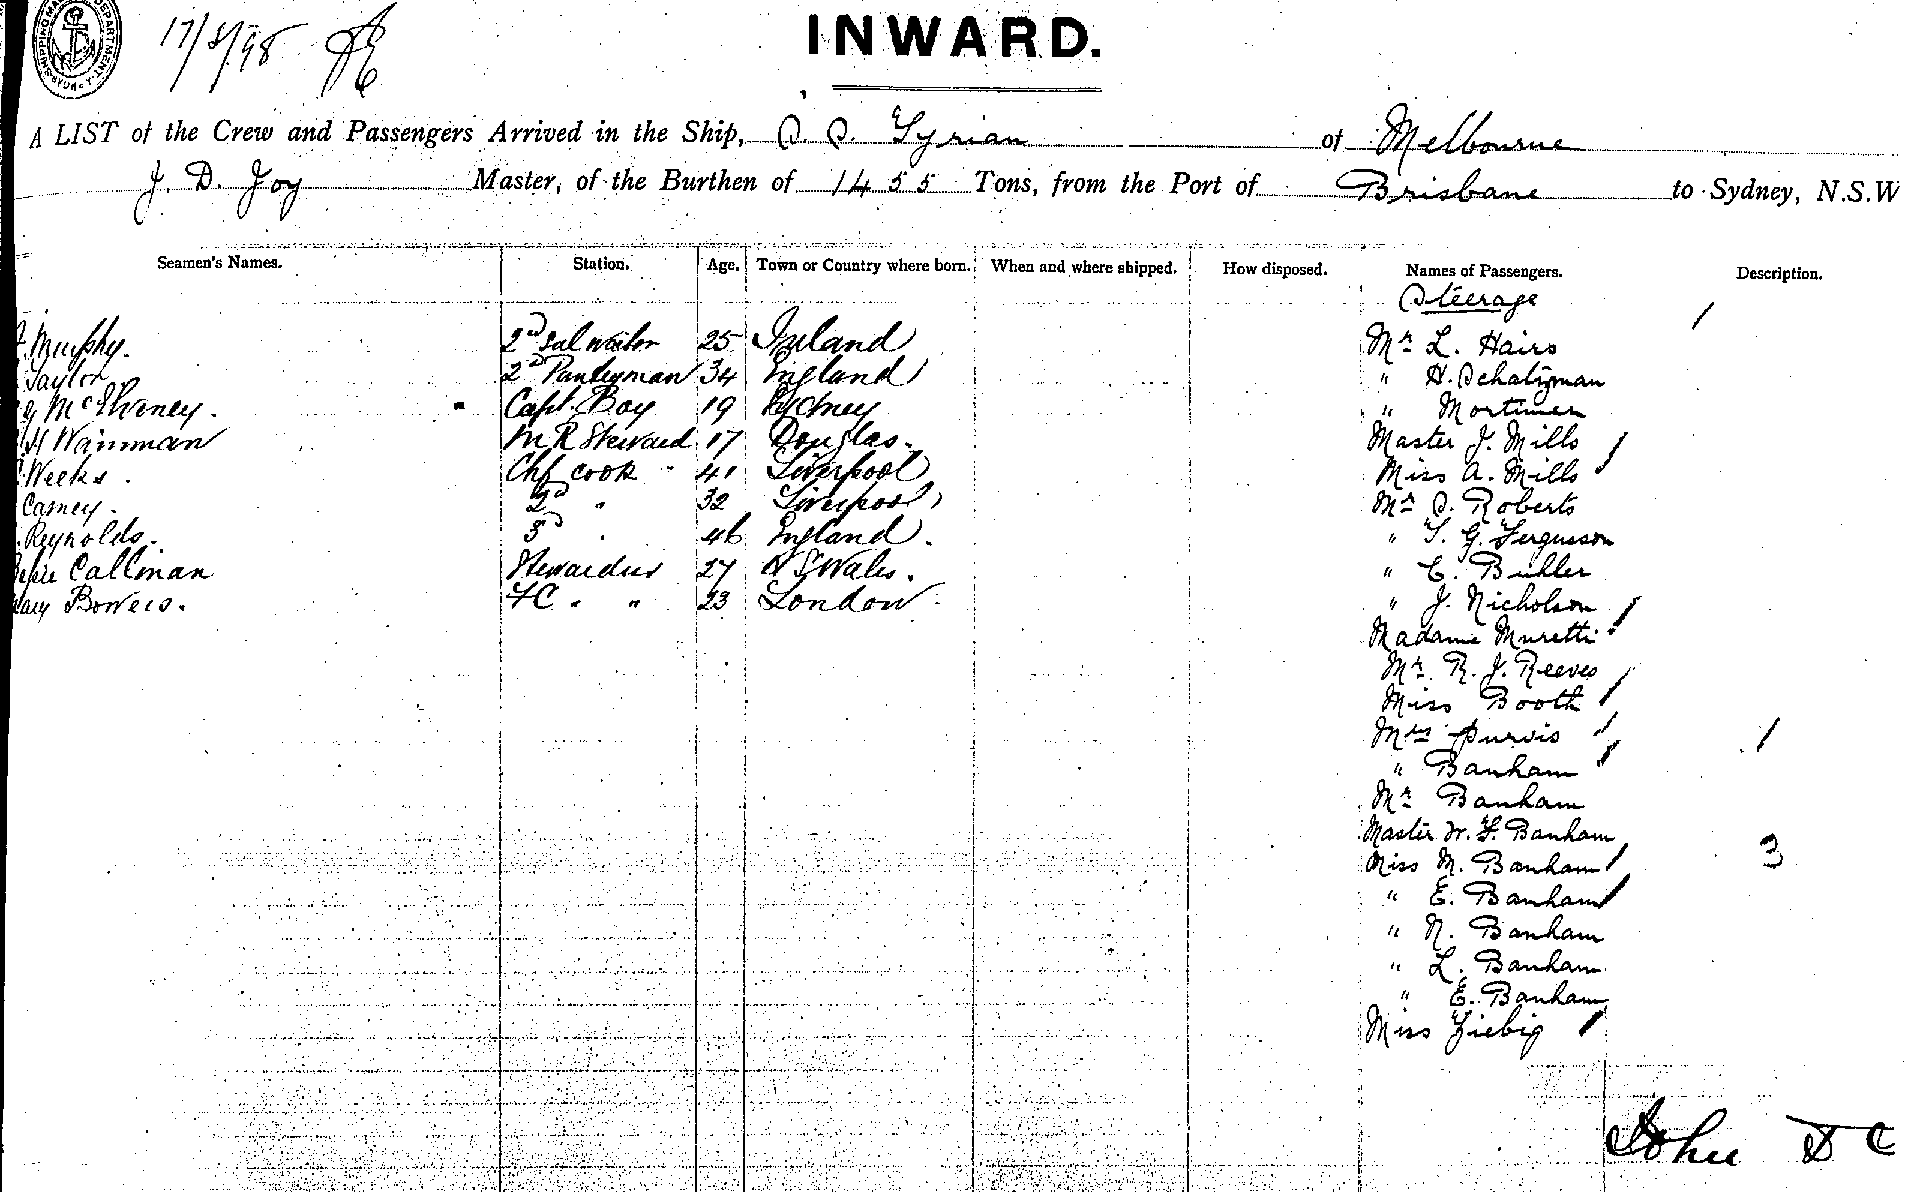 SHIPPING MA DEPARTMENT
17/8/98
INWARD.
A LIST of the Crew and Passengers Arrived in the Ship, S. S. Tyrian of Melbourne
J. D. Joy Master, of the Burthen of 1455 Tons, from the Port of Brisbane to Sydney, N.S.W
Seamen's Names. Station. Age. Town or Country where born. When and where shipped. How disposed. Names of Passengers. Description.
Steerage
Murphy. 2D Sal waiter 25 Ireland Mr L. Hairs
Taylor 2D Pantryman 34 England " H. Schatzman
McElveney. Capt. Boy 19 Sydney " Mortimer
H Wainman M R Steward 17 Douglas. Master J. Mills
Weeks. Chf cook 41 Liverpool Miss A. Mills
Carney. 2D " 32 Liverpool Mr S. Roberts
Reynolds. 3D " 46 England. " T. G. Fergusson
Callinan Stewardess 27 N S Wales. " C. Buhler
Bowers. FC " " 23 London. " J. Nicholson
Madame Muretti
Mr. R. J. Reeves
Miss Booth
Mrs Purvis 1
" Banham
Mr Banham
Master W. F. Banham
Miss M. Banham 3
" E. Banham
" N. Banham
" L. Banham
" E. Banham
Miss Ziebig
John D C